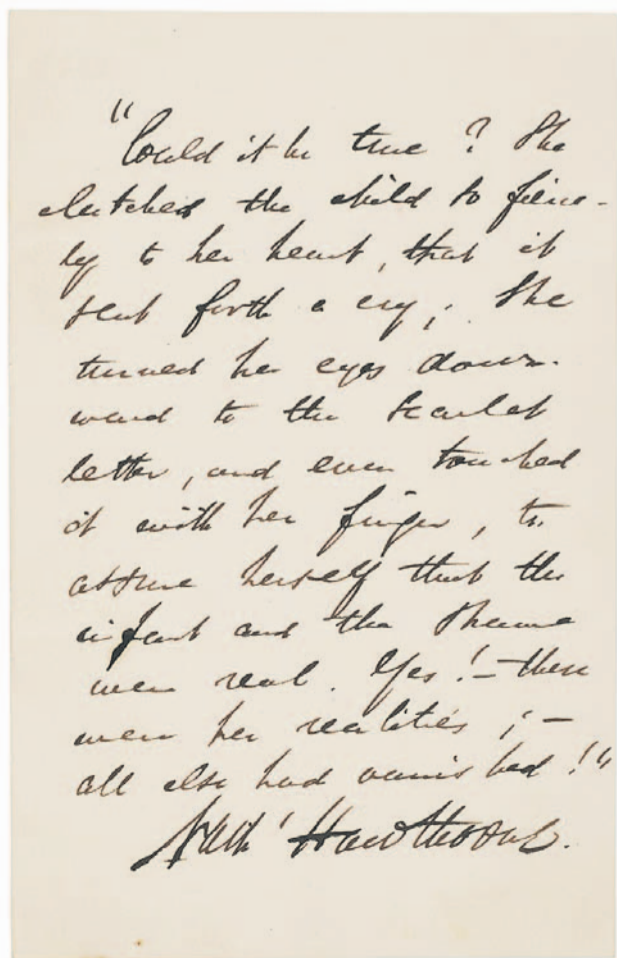 "Could it be true? She
clutched the child so fierce-
ly to her heart, that it
sent forth a cry; she
turned her eyes down-
ward to the scarlet
letter, and even touched
it with her finger, to
assure herself that the
infant and the shame
were real. Yes!—these
were her realities;—
all else had vanished!"
Nath' Hawthorne.